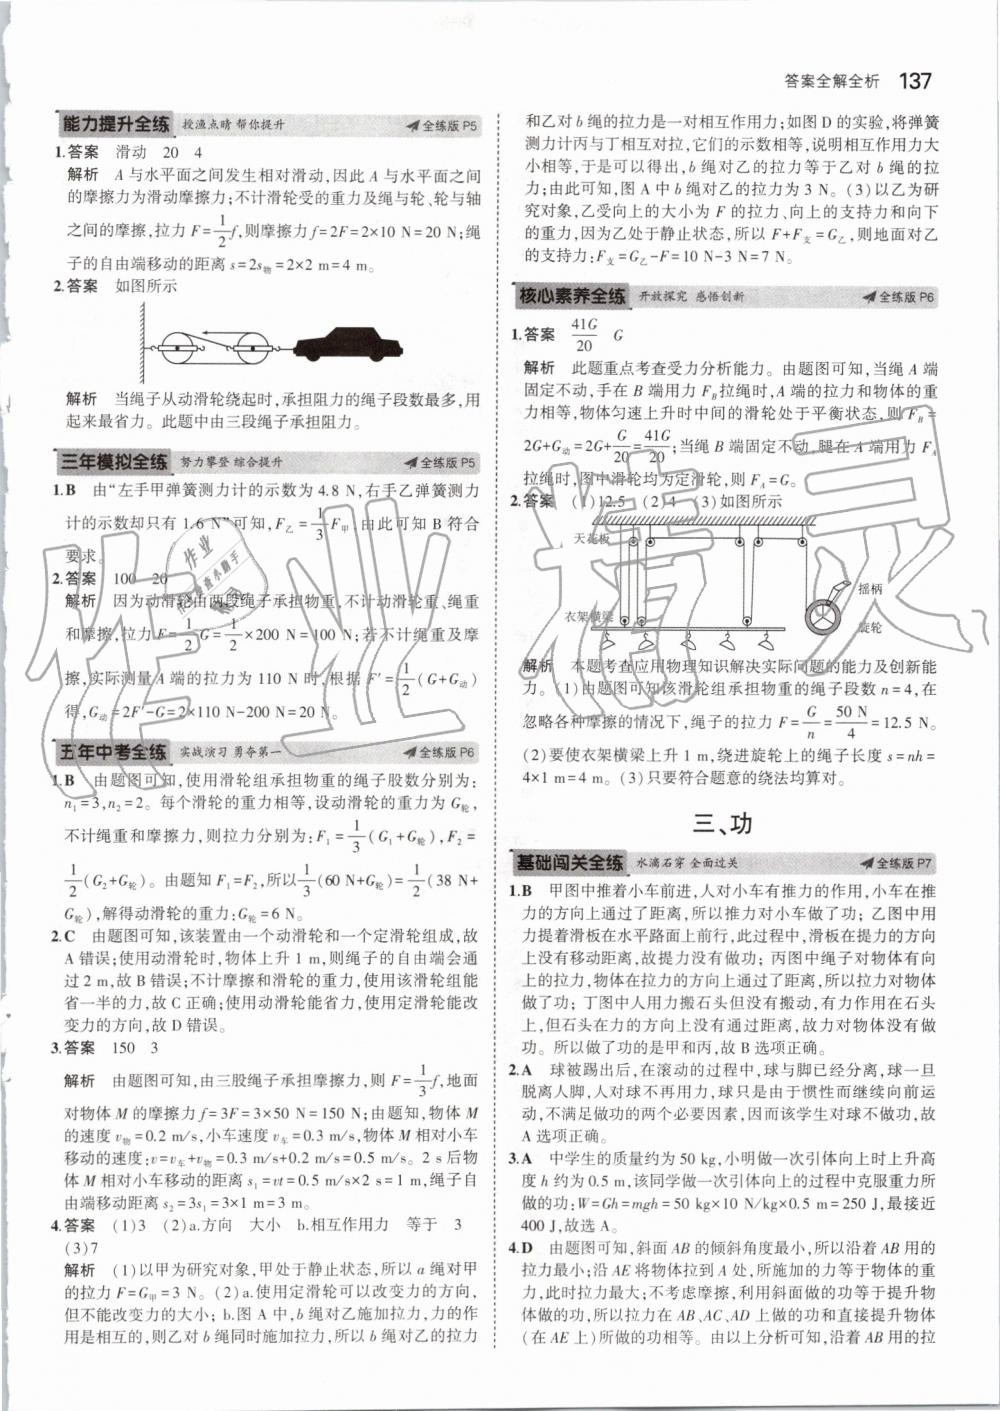 答案全解全析 137
能力提升全练 授渔点睛 帮你提升 全练版P5
1.答案 滑动 20 4
解析 A与水平面之间发生相对滑动,因此A与水平面之间
的摩擦力为滑动摩擦力;不计滑轮受的重力及绳与轮、轮与轴
之间的摩擦,拉力F=1/2f,则摩擦力f=2F=2×10 N=20 N;绳
子的自由端移动的距离s=2s物=2×2 m=4 m。
2.答案 如图所示
解析 当绳子从动滑轮绕起时,承担阻力的绳子段数最多,用
起来最省力。此题中由三段绳子承担阻力。
三年模拟全练 努力攀登 综合提升 全练版P5
1.B 由“左手甲弹簧测力计的示数为4.8 N,右手乙弹簧测力
计的示数却只有1.6 N”可知,F乙=1/3F甲,由此可知B符合
要求。
2.答案 100 20
解析 因为动滑轮由两段绳子承担物重,不计动滑轮重、绳重
和摩擦,拉力F=1/2G=1/2×200 N=100 N;若不计绳重及摩
擦,实际测量A端的拉力为110 N时,根据F′=1/2(G+G动)
得,G动=2F′-G=2×110 N-200 N=20 N。
五年中考全练 实战演习 勇夺第一 全练版P6
1.B 由题图可知,使用滑轮组承担物重的绳子股数分别为:
n1=3,n2=2。每个滑轮的重力相等,设动滑轮的重力为G轮,
不计绳重和摩擦力,则拉力分别为:F1=1/3(G1+G轮),F2=
1/2(G2+G轮)。由题知F1=F2,所以1/3(60 N+G轮)=1/2(38 N+
G轮),解得动滑轮的重力:G轮=6 N。
2.C 由题图可知,该装置由一个动滑轮和一个定滑轮组成,故
A错误;使用动滑轮时,物体上升1 m,则绳子的自由端会通
过2 m,故B错误;不计摩擦和滑轮的重力,使用该滑轮组能
省一半的力,故C正确;使用动滑轮能省力,使用定滑轮能改
变力的方向,故D错误。
3.答案 150 3
解析 由题图可知,由三股绳子承担摩擦力,则F=1/3f,地面
对物体M的摩擦力f=3F=3×50 N=150 N;由题知,物体M
的速度v物=0.2 m/s,小车速度v车=0.3 m/s,物体M相对小车
移动的速度:v=v车+v物=0.3 m/s+0.2 m/s=0.5 m/s。2 s后物
体M相对小车移动的距离s1=vt=0.5 m/s×2 s=1 m,绳子自
由端移动距离s2=3s1=3×1 m=3 m。
4.答案 (1)3 (2)a.方向 大小 b.相互作用力 等于 3
(3)7
解析 (1)以甲为研究对象,甲处于静止状态,所以a绳对甲
的拉力F=G甲=3 N。(2)a.使用定滑轮可以改变力的方向,
但不能改变力的大小;b.图A中,b绳对乙施加拉力,力的作
用是相互的,则乙对b绳同时施加拉力,所以b绳对乙的拉力
和乙对b绳的拉力是一对相互作用力;如图D的实验,将弹簧
测力计丙与丁相互对拉,它们的示数相等,说明相互作用力大
小相等,于是可以得出,b绳对乙的拉力等于乙对b绳的拉
力;由此可知,图A中b绳对乙的拉力为3 N。(3)以乙为研
究对象,乙受向上的大小为F的拉力、向上的支持力和向下
的重力,因为乙处于静止状态,所以F+F支=G乙,则地面对乙
的支持力:F支=G乙-F=10 N-3 N=7 N。
核心素养全练 开放探究 感悟创新 全练版P6
1.答案 41G/20 G
解析 此题重点考查受力分析能力。由题图可知,当绳A端
固定不动,手在B端用力FB拉绳时,A端的拉力和物体的重
力相等,物体匀速上升时中间的滑轮处于平衡状态,则FB=
2G+G动=2G+G/20=41G/20;当绳B端固定不动,腿在A端用力FA
拉绳时,图中滑轮均为定滑轮,则FA=G。
2.答案 (1)12.5 (2)4 (3)如图所示
天花板
衣架横梁
摇柄
旋轮
解析 本题考查应用物理知识解决实际问题的能力及创新能
力。(1)由题图可知该滑轮组承担物重的绳子段数n=4,在
忽略各种摩擦的情况下,绳子的拉力F=G/n=50 N/4=12.5 N。
(2)要使衣架横梁上升1 m,绕进旋轮上的绳子长度s=nh=
4×1 m=4 m。(3)只要符合题意的绕法均算对。
三、功
基础闯关全练 水滴石穿 全面过关 全练版P7
1.B 甲图中推着小车前进,人对小车有推力的作用,小车在推
力的方向上通过了距离,所以推力对小车做了功;乙图中用
力提着滑板在水平路面上前行,此过程中,滑板在提力的方向
上没有移动距离,故提力没有做功;丙图中绳子对物体有向
上的拉力,物体在拉力的方向上通过了距离,所以拉力对物体
做了功;丁图中人用力搬石头但没有搬动,有力作用在石头
上,但石头在力的方向上没有通过距离,故力对物体没有做
功。所以做了功的是甲和丙,故B选项正确。
2.A 球被踢出后,在滚动的过程中,球与脚已经分离,球一旦
脱离人脚,人对球不再用力,球只是由于惯性而继续向前运
动,不满足做功的两个必要因素,因而该学生对球不做功,故
A选项正确。
3.A 中学生的质量约为50 kg,小明做一次引体向上时上升高
度h约为0.5 m,该同学做一次引体向上的过程中克服重力所
做的功:W=Gh=mgh=50 kg×10 N/kg×0.5 m=250 J,最接近
400 J,故选A。
4.D 由题图可知,斜面AB的倾斜角度最小,所以沿着AB用的
拉力最小;沿AE将物体拉到A处,所施加的力等于物体的重
力,此时拉力最大;不考虑摩擦,利用斜面做的功等于提升物
体做的功,所以拉力在AB、AC、AD上做的功和直接提升物体
(在AE上)所做的功相等。由以上分析可知,沿着AB用的拉
作业精灵